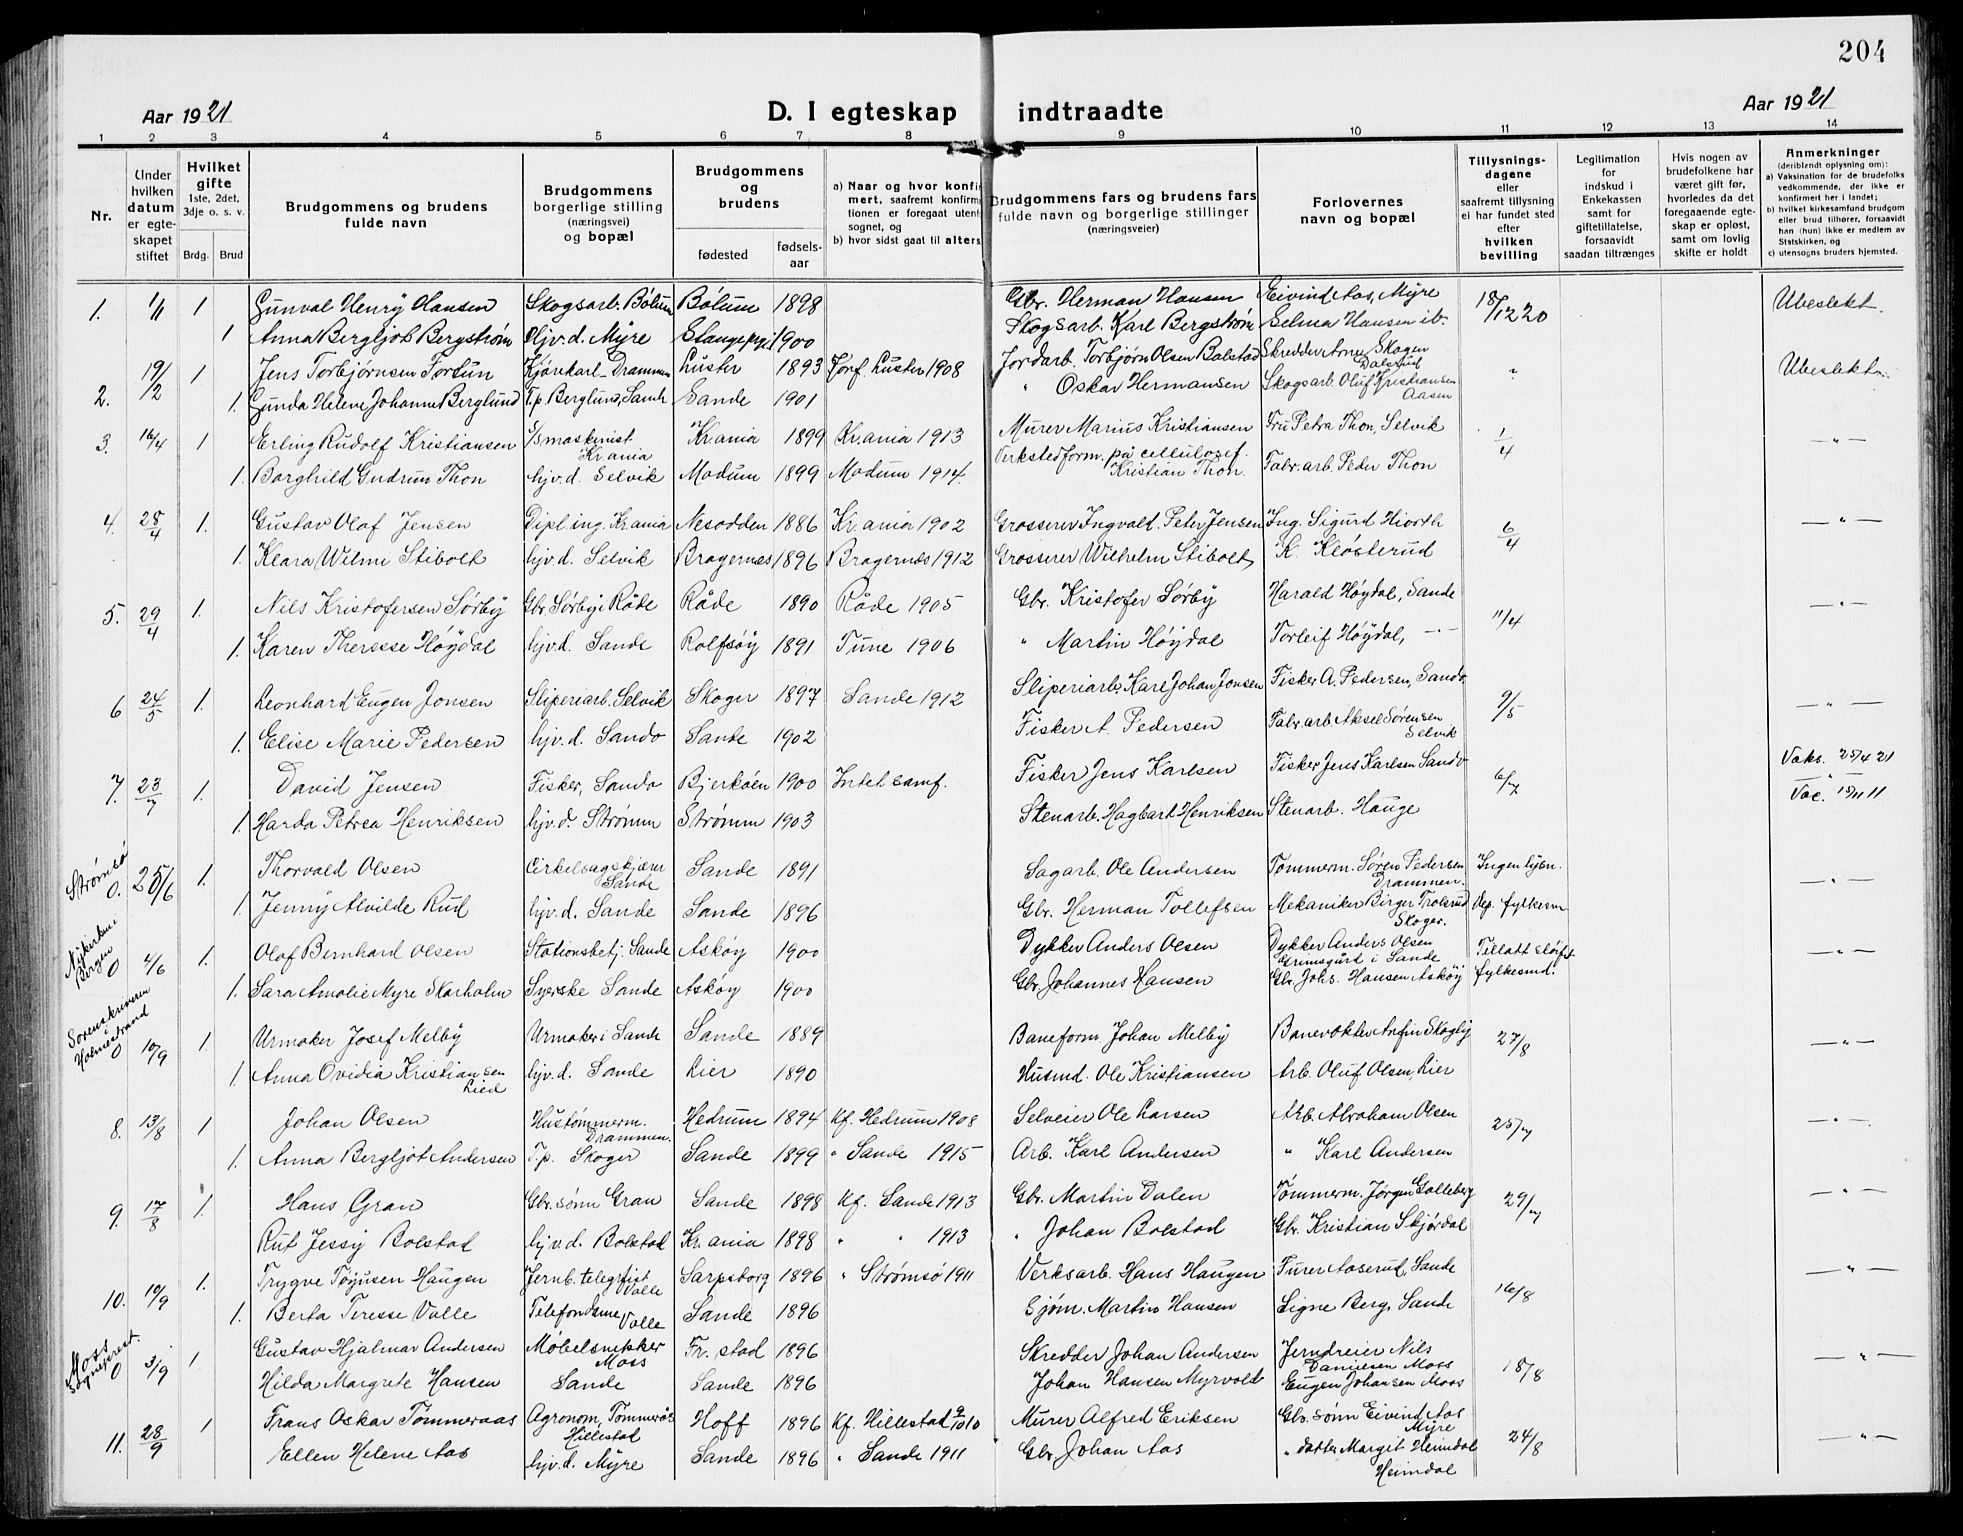 204
Aar 1921 D. I egteskap indtraadte Aar 1921
1 2 3 4 5 6 7 8 9 10 11 12 13 14
Nr.
Under hvilken datum er egteskapet stiftet
Hvilket gifte 1ste, 2det, 3dje o. s. v. Brdg. Brud
Brudgommens og brudens fulde navn
Brudgommens borgerlige stilling (næringsvei) og bopæl
Brudgommens og brudens fødested fødsels-aar
a) Naar og hvor konfirmert, saafremt konfirmationen er foregaat utenfor sognet, og b) hvor sidst gaat til alters
Brudgommens fars og brudens fars fulde navn og borgerlige stillinger (næringsveier)
Forlovernes navn og bopæl
Tillysningsdagene eller saafremt tillysning ei har fundet sted efter hvilken bevilling
Legitimation for indskud i Enkekassen samt for giftetillatelse, forsaavidt saadan tiltrænges
Hvis nogen av brudefolkene har været gift før, hvorledes da det foregaaende egteskap er opløst, samt om lovlig skifte er holdt
Anmerkninger (deriblandt oplysning om): a) Vaksination for de brudefolks vedkommende, der ikke er konfirmert her i landet; b) hvilket kirkesamfund brudgom eller brud tilhører, forsaavidt han (hun) ikke er medlem av Statskirken, og c) utensogns bruders hjemsted.
1. 1/1 1 Gunval Henry Hansen Skogsarb. Bölum Bölum 1898 Gbr. Herman Hansen Eivind Aas, Myre 18/12 20 Ubeslekt.
1 Anna Bergljot Bergström Hjv.d. Myre Stange pgj. 1900 Skogsarb. Karl Bergström Selma Hansen ib.
2. 19/2 1 Jens Torbjörnsen Fortun Kjörekarl Drammen Luster 1893 Jonf. Luster 1908 Jordarb. Torbjörn Olsen Bolstad Skredder Arne Skogen Dalsrud " Ubeslekt.
1. Gunda Helene Johanne Berglund T.p. Berglund, Sande Sande 1901 " Oskar Hermansen Skogsarb. Oluf Kristiansen Aasen
3. 16/4 1 Erling Rudolf Kristiansen S/s maskinist Kr.ania Kr.ania 1899 Kr.ania 1913 Murer Marius Kristiansen Fru Petra Thon, Selvik 1/4 - " -
1. Borghild Gudrun Thon hjv.d. Selvik Modum 1899 Modum 1914. Verkstedform. på cellulosef. Kristian Thon. Fabr.arb. Peder Thon
4. 28/4 1. Gustav Olaf Jensen Dipl. ing. Kr.ania Nesodden 1886 Kr.ania 1902 Grosserer Ingvald Peter Jensen Ing. Sigurd Hiorth 6/4 - " -
1. Klara Wilmi Stibolt hjv.d. Selvik Bragernæs 1896 Bragernæs 1912 Grosserer Wilhelm Stibolt K. Klösterud
5. 29/4 1. Nils Kristofersen Sörby Gbr. Sörby i Råde Råde 1890 Råde 1905 Gbr. Kristofer Sörby Harald Höydal, Sande 11/4 - " -
1. Karen Therese Höydal hjv.d. Sande Rolfsöy 1891 Tune 1906 " Martin Höydal Torleif Höydal, - " -
6 24/5 1. Leonhard Eugen Jonsen Sliperiarb. Selvik Skoger 1897 Sande 1912 Sliperiarb. Karl Johan Jonsen Fisker A. Pedersen, Sando, 9/5 - " -
1. Elise Marie Pedersen hjv.d. Sando Sande 1902 Fisker A. Pedersen Fabr.arb. Aksel Sörensen Selvik
7. 23/7 1. David Jensen Fisker, Sando Bjerköen 1900 Intet samf. Fisker Jens Karlsen Fisker Jens Karlsen Sando 6/7 Vaks. 25/4 21 - " -
1. Harda Petrea Henriksen hjv.d. Strömm Strömm 1903 Stenarb. Hagbart Henriksen Stenarb. Hauge Vac. 15/11 11
Strömsö 0. 25/6 1. Thorvald Olsen Cirkelsagskjærer Sande Sande 1891 Sagarb. Ole Andersen Tömmerm. Sören Pedersen Drammen. Ingen lysn. - " -
1. Jenny Alvilde Rud hjv.d. Sande Sande 1896 Gbr. Herman Tollefsen Mekaniker Birger Trolsrud Skoger. fylkesm
Nykirken i Bergen 0 4/6 1. Olaf Bernhard Olsen Stationsbetj. Sande Asköy 1900 Dykker Anders Olsen Dykker Anders Olsen Grimsgård i Sande Tillatt slöif. - " -
1. Sara Amalie Myre Skarholm Syerske Sande Asköy 1900 Gbr. Johannes Hansen Gbr. Johs. Hansen Asköy fylkesmd.
Sorenskriveren i Holmestrand 0 10/9 1 Urmaker Josef Melby Urmaker i Sande Sande 1889 Baneform. Johan Melby Banevokter Arfin Skogly 27/8 - " -
1. Anna Ovidia Kristiansen Lied hjv.d. Sande Lier 1890 Husmd. Ole Kristiansen Arb. Oluf Olsen, Lier
8. 13/8 1 Johan Olsen Hustömmerm. Drammen. Hedrum 1894 Kf. Hedrum 1908 Selveier Ole Larsen Arb. Abraham Olsen 25/7 - " -
1. Anna Bergljot Andersen T.p. Skoger Sande 1899 " Sande 1915 Arb. Karl Andersen " Karl Andersen
9. 17/8 1. Hans Gran Gbr. sönn Gran Sande 1898 Kf. Sande 1913 Gbr. Martin Dalen Tömmerm. Jörgen Galleberg 29/7 - " -
Rut Jessy Bolstad hjv.d. Bolstad Kr.ania 1898 " " 1913 " Johan Bolstad Gbr. Kristian Skjördal
10. 10/9 1. Trygve Töyusen Haugen Jernb. telegrfist Valle Sarpsborg 1896 " Strömsö 1911 Verksarb. Hans Haugen Furer Aaserud, Sande 16/8 - " -
1. Berta Terese Valle Telefondame Valle Sande 1896 Sjöm. Martin Hansen Signe Berg, Sande
Moss sogneprest. 0 3/9 1 Gustav Hjalmar Andersen Möbelsnekker Moss Fr. stad 1896 Skredder Johan Andersen Jerndreier Nils Danielsen Moss 18/8 - " -
Hilda Margrete Hansen Sande Sande 1896 Johan Hansen Myrvold Eugen Johansen Moss
11. 28/9 1 Frans Oskar Tömmeraas Agronom, Tömmerås Hillestad Hoff 1896 Kf. Hillestad 9/10 10 Murer Alfred Eriksen Gbr. sönn Eivind Aas Myre 24/8 - " -
Ellen Helene Aas hjv.d. Myre Sande 1896 " Sande 1911 Gbr. Johan Aas " datter Margit Heimdal Heimdal